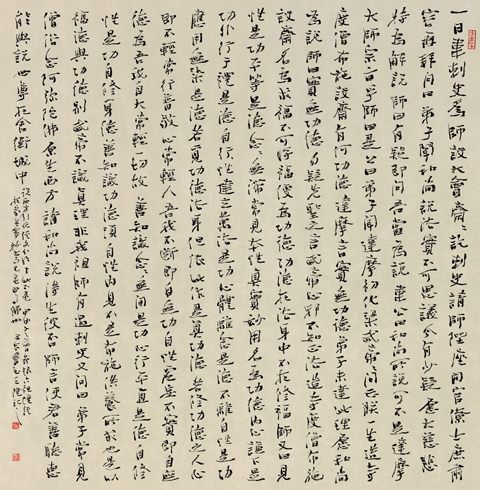 一日韋刺史為師設大會齋齋訖刺史請師陞座同官僚士庶肅
容再拜問曰弟子聞和尚說法實不可思議今有少疑願大慈悲
特為解說師曰有疑即問吾當為說韋公曰和尚所說可不是達摩
大師宗旨乎師曰是公曰弟子聞達摩初化梁武帝帝問云朕一生造寺
度僧布施設齋有何功德達摩言實無功德弟子未達此理願和尚
為說師曰實無功德勿疑先聖之言武帝心邪不知正法造寺度僧布施
設齋名為求福不可將福便為功德功德在法身中不在修福師又曰見
性是功平等是德念念無滯常見本性真實妙用名為功德內心謙下是
功外行于禮是德自性建立萬法是功心體離念是德不離自性是功
應用無染是德若覓功德法身但依此作是真功德若修功德之人心
即不輕常行普敬心常輕人吾我不斷即自無功自性虛妄不實即自無
德為吾我自大常輕一切故善知識念念無間是功心行平直是德自修
性是功自修身是德善知識功德須自性內見不是布施供養之所求也是以
福德與功德別武帝不識真理非我祖師有過刺史又問曰弟子常見
僧俗念阿彌陀佛願生西方請和尚說得生彼否師言使君善聽惠
能與說世尊在舍衛城中